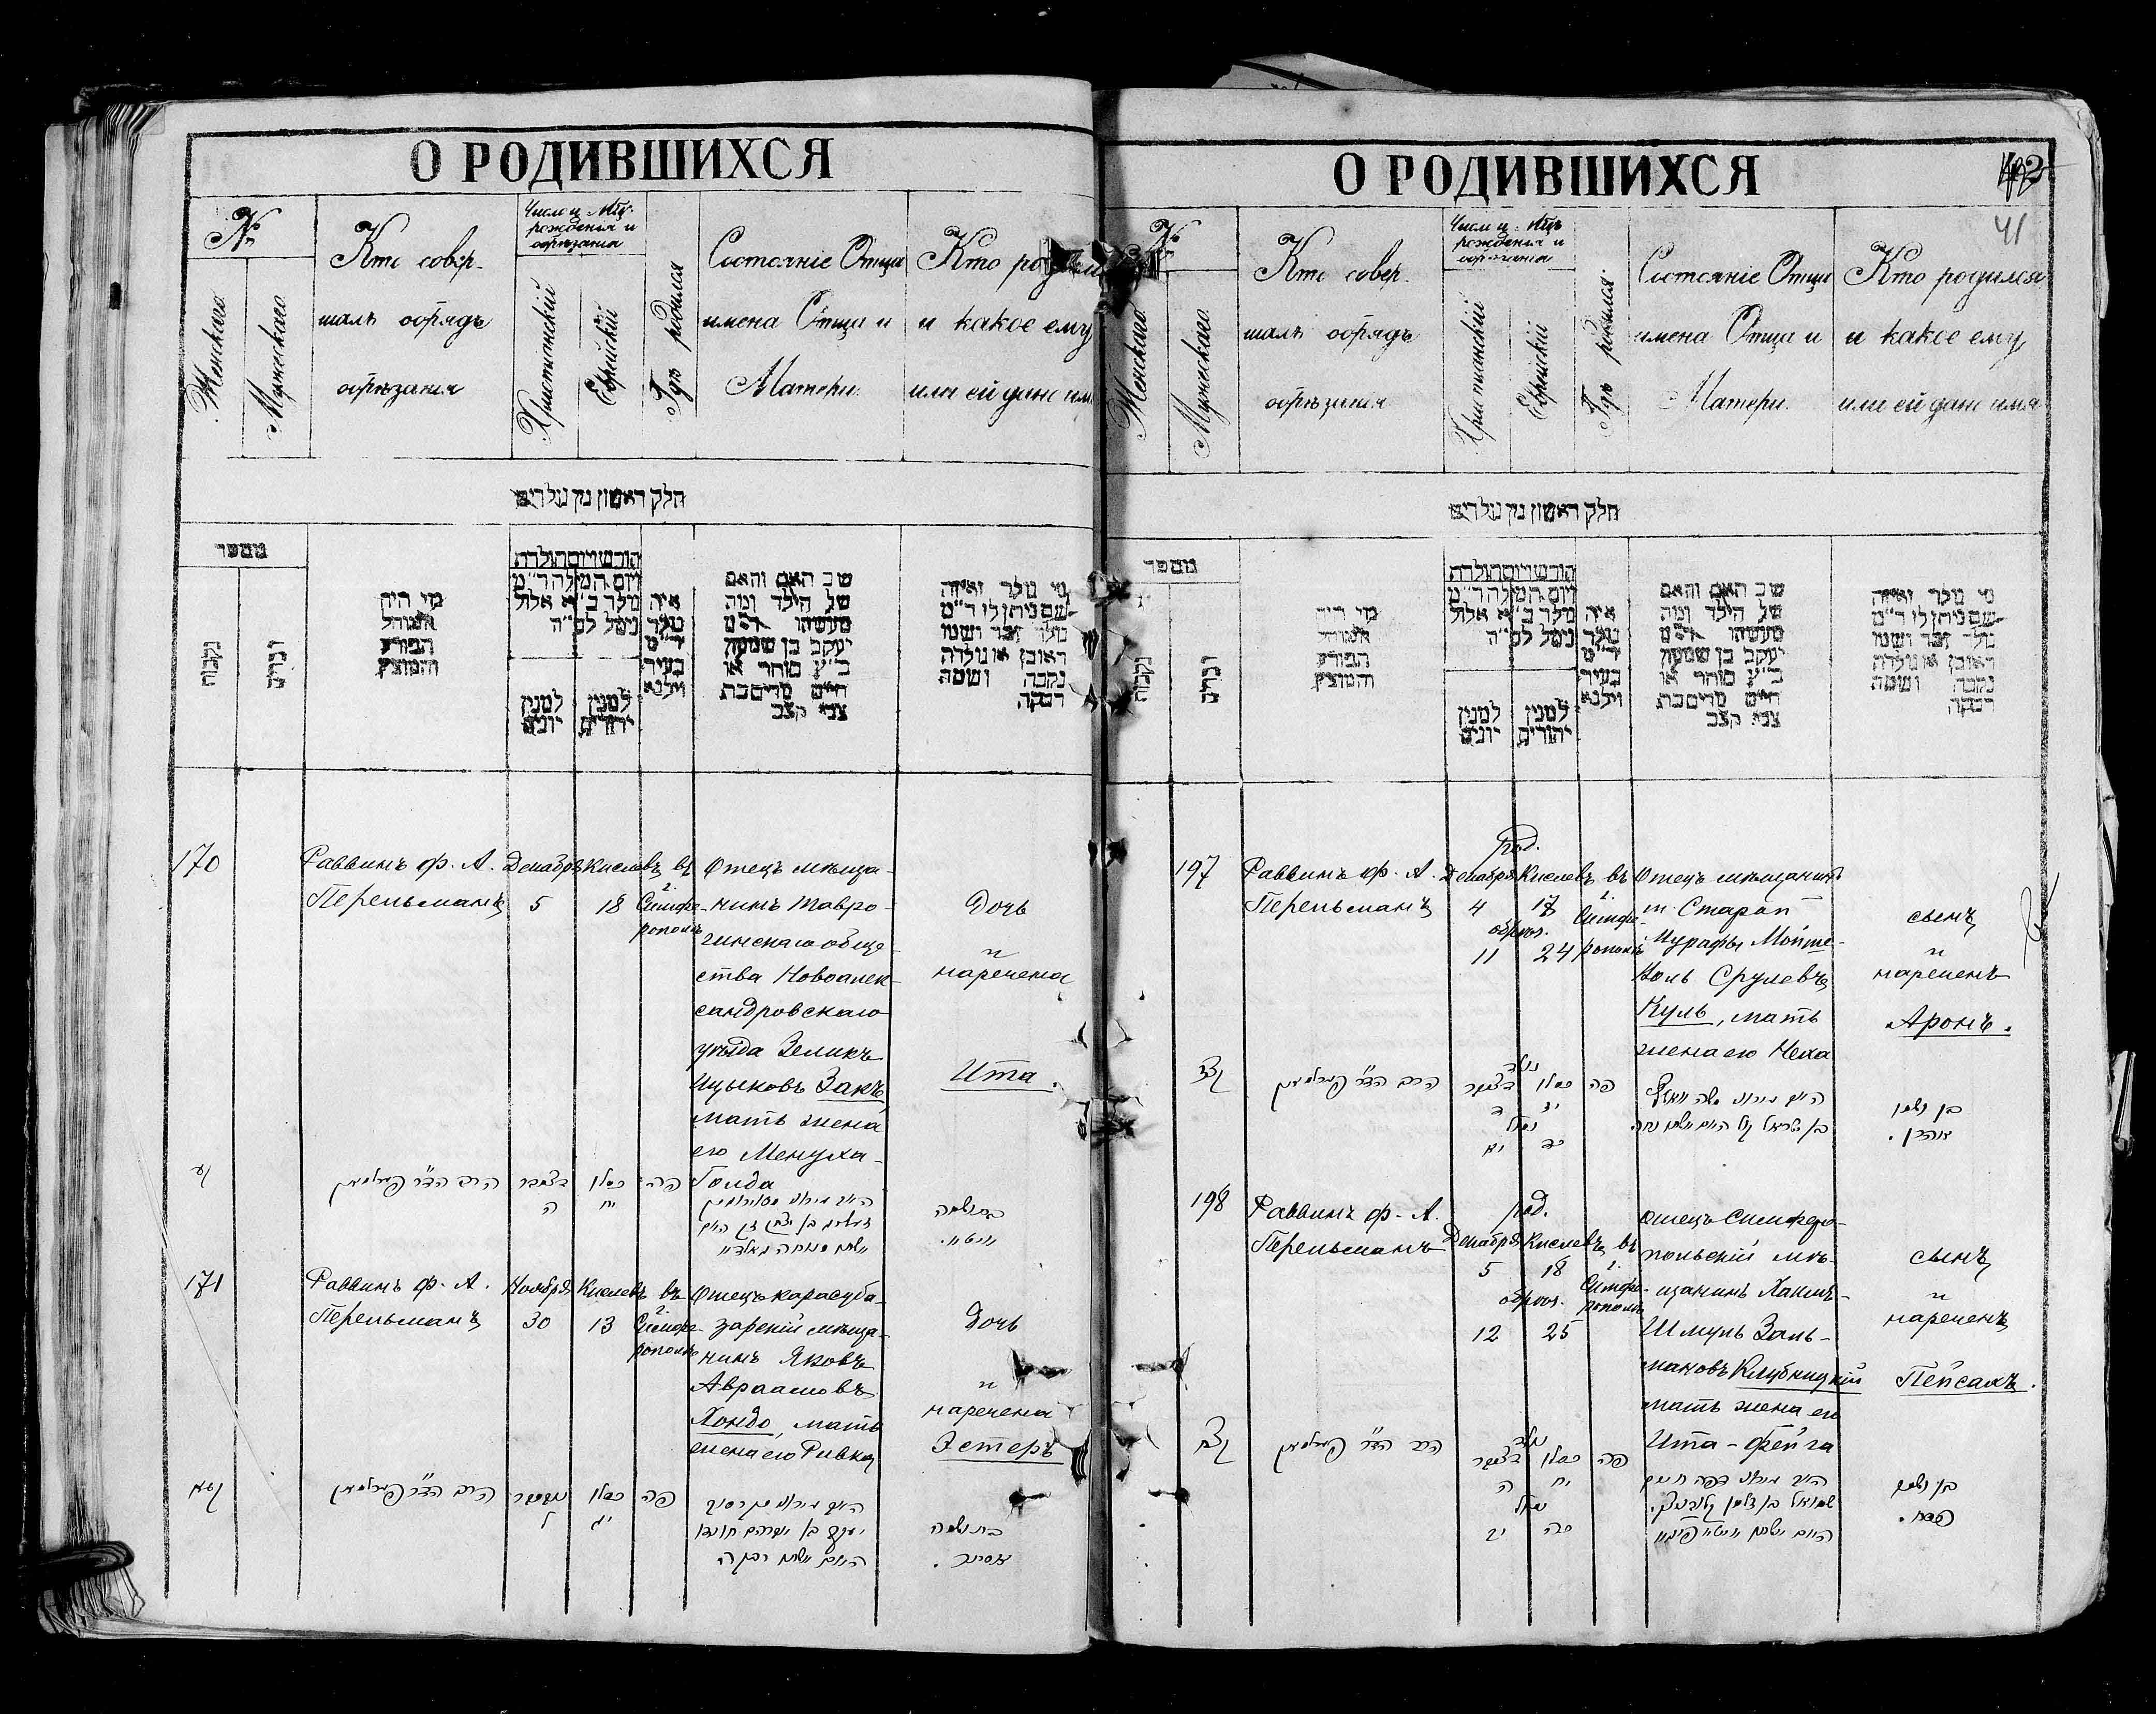 О РОДИВШИХСЯ
№
Женскаго
Мужескаго
Кто совер-
шалъ обрядъ
обрѣзанія
Число и Мѣц.
рожденія и
обрѣзанія
Христіанскій
Еврейскій
Гдѣ родился
Состояніе Отца
имена Отца и
Матери.
Кто
и какое ему
или ей дано имя
חלק ראשון מן נולדים
מספר
נקבות
זכרים
מי היה
המוהל
הפורע
והמוצץ
חודש ויום תולדת
ויום המילה ר״מ
נולד ב״א אלול
ניסל לפ״ה
למנין
יונים
למנין
יהודים
איה
נולד
ד״מ
בעיר
ווילנא
שם האם והאם
של הילד ומה
מעשהו ד״מ
יעקב בן שמעון
ב״ע סוחר או
חיים מרים בת
צבי קצב
מי נולד ואיזה
שם ניתן לו ד״מ
נולד זכר ושמו
ראובן או נולדה
נקבה ושמה
רבקה
170
Раввинъ ф. А.
Перельманъ
Декабря
5
Кислевъ
18
въ
г.
Симфе-
рополѣ
Отецъ мѣща-
нинъ Тавро-
гинскаго обще-
ства Новоалек-
сандровскаго
уѣзда Зеликъ
Ицыковъ Закъ,
мать жена
его Менуха-
Гольда
Дочь
и
наречена
Ита.
קע
הרב הד״ר פערלמאן
דצמבר
ה
כסלו
יח
פה
171
Раввинъ ф. А.
Перельманъ
Ноября
30
Кислевъ
13
въ
г.
Симфе-
рополѣ
Отецъ карасуба-
зарскій мѣща-
нинъ Яковъ
Авраамовъ
Хондо, мать
жена его Ривка
Дочь
и
наречена
Эстеръ
קעא
הרב הד״ר פערלמאן
ל
כסלו
יג
פה
יעקב בן אברהם חונדו
האם אשתו רבקה
О РОДИВШИХСЯ
41
№
Женскаго
Мужескаго
Кто совер-
шалъ обрядъ
обрѣзанія
Число и Мѣц.
рожденія и
обрѣзанія
Христіанскій
Еврейскій
Гдѣ родился.
Состояніе Отца
имена Отца и
Матери.
Кто родился
и какое ему
или ей дано имя
חלק ראשון מן נולדים
מספר
נקבות
זכרים
מי היה
המוהל
הפורע
והמוצץ
חודש ויום תולדת
ויום המילה ר״מ
נולד ב״א אלול
ניסל לפ״ה
למנין
יונים
למנין
יהודים
איה
נולד
ד״מ
בעיר
ווילנא
שם האם והאם
של הילד ומה
מעשהו ד״מ
יעקב בן שמעון
ב״ע סוחר או
חיים מרים בת
צבי קצב
מי נולד ואיזה
שם ניתן לו ד״מ
נולד זכר ושמו
ראובן או נולדה
נקבה ושמה
רבקה
197
Раввинъ ф. А.
Перельманъ
род.
Декабря
4
обрѣз.
11
Кислевъ
17
24
въ
г.
Симфе-
рополѣ
Отецъ мѣщанинъ
м. Старой
Мурафы Мойше-
Воль Срулевъ
Куль, мать
жена его Неха
сынъ
и
нареченъ
Аронъ.
קצז
הרב הד״ר פערלמאן
נולד
ד
יא
כסלו
יז
כד
פה
אהרן.
198
Раввинъ ф. А.
Перельманъ
род.
Декабря
5
обрѣз.
12
Кислевъ
18
25
въ
г.
Симфе-
рополѣ
Отецъ симферо-
польскій мѣ-
щанинъ Хаимъ-
Шмуль Заль-
мановъ Клубницкій
мать жена его
Ита-Фейга
сынъ
и
нареченъ
Пейсахъ.
קצח
הרב הד״ר פערלמאן
נולד
ה
יב
כסלו
יח
כה
פה
פסח.